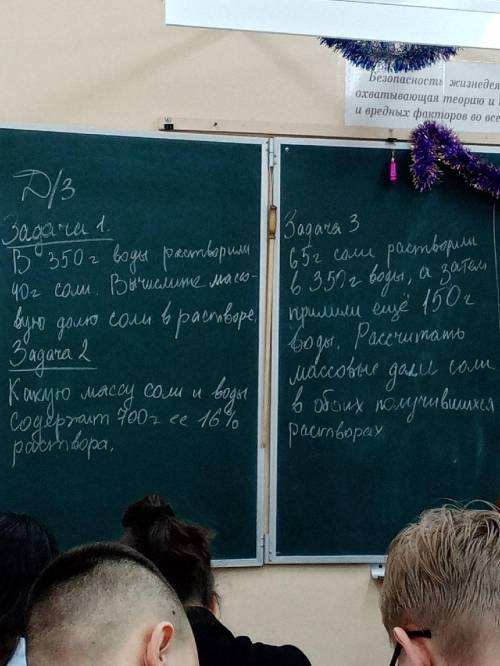 Безопасность жизнедея
охватывающая теорию и
и вредных факторов во все
Д/З
Задача 1.
В 350г воды растворили
40г соли. Вычислите массо-
вую долю соли в растворе.
Задача 2
Какую массу соли и воды
содержат 700г ее 16%
раствора.
Задача 3
65г соли растворили
в 350г воды, а затем
прилили ещё 150г
воды. Рассчитать
массовые доли соли
в обоих получившихся
растворах